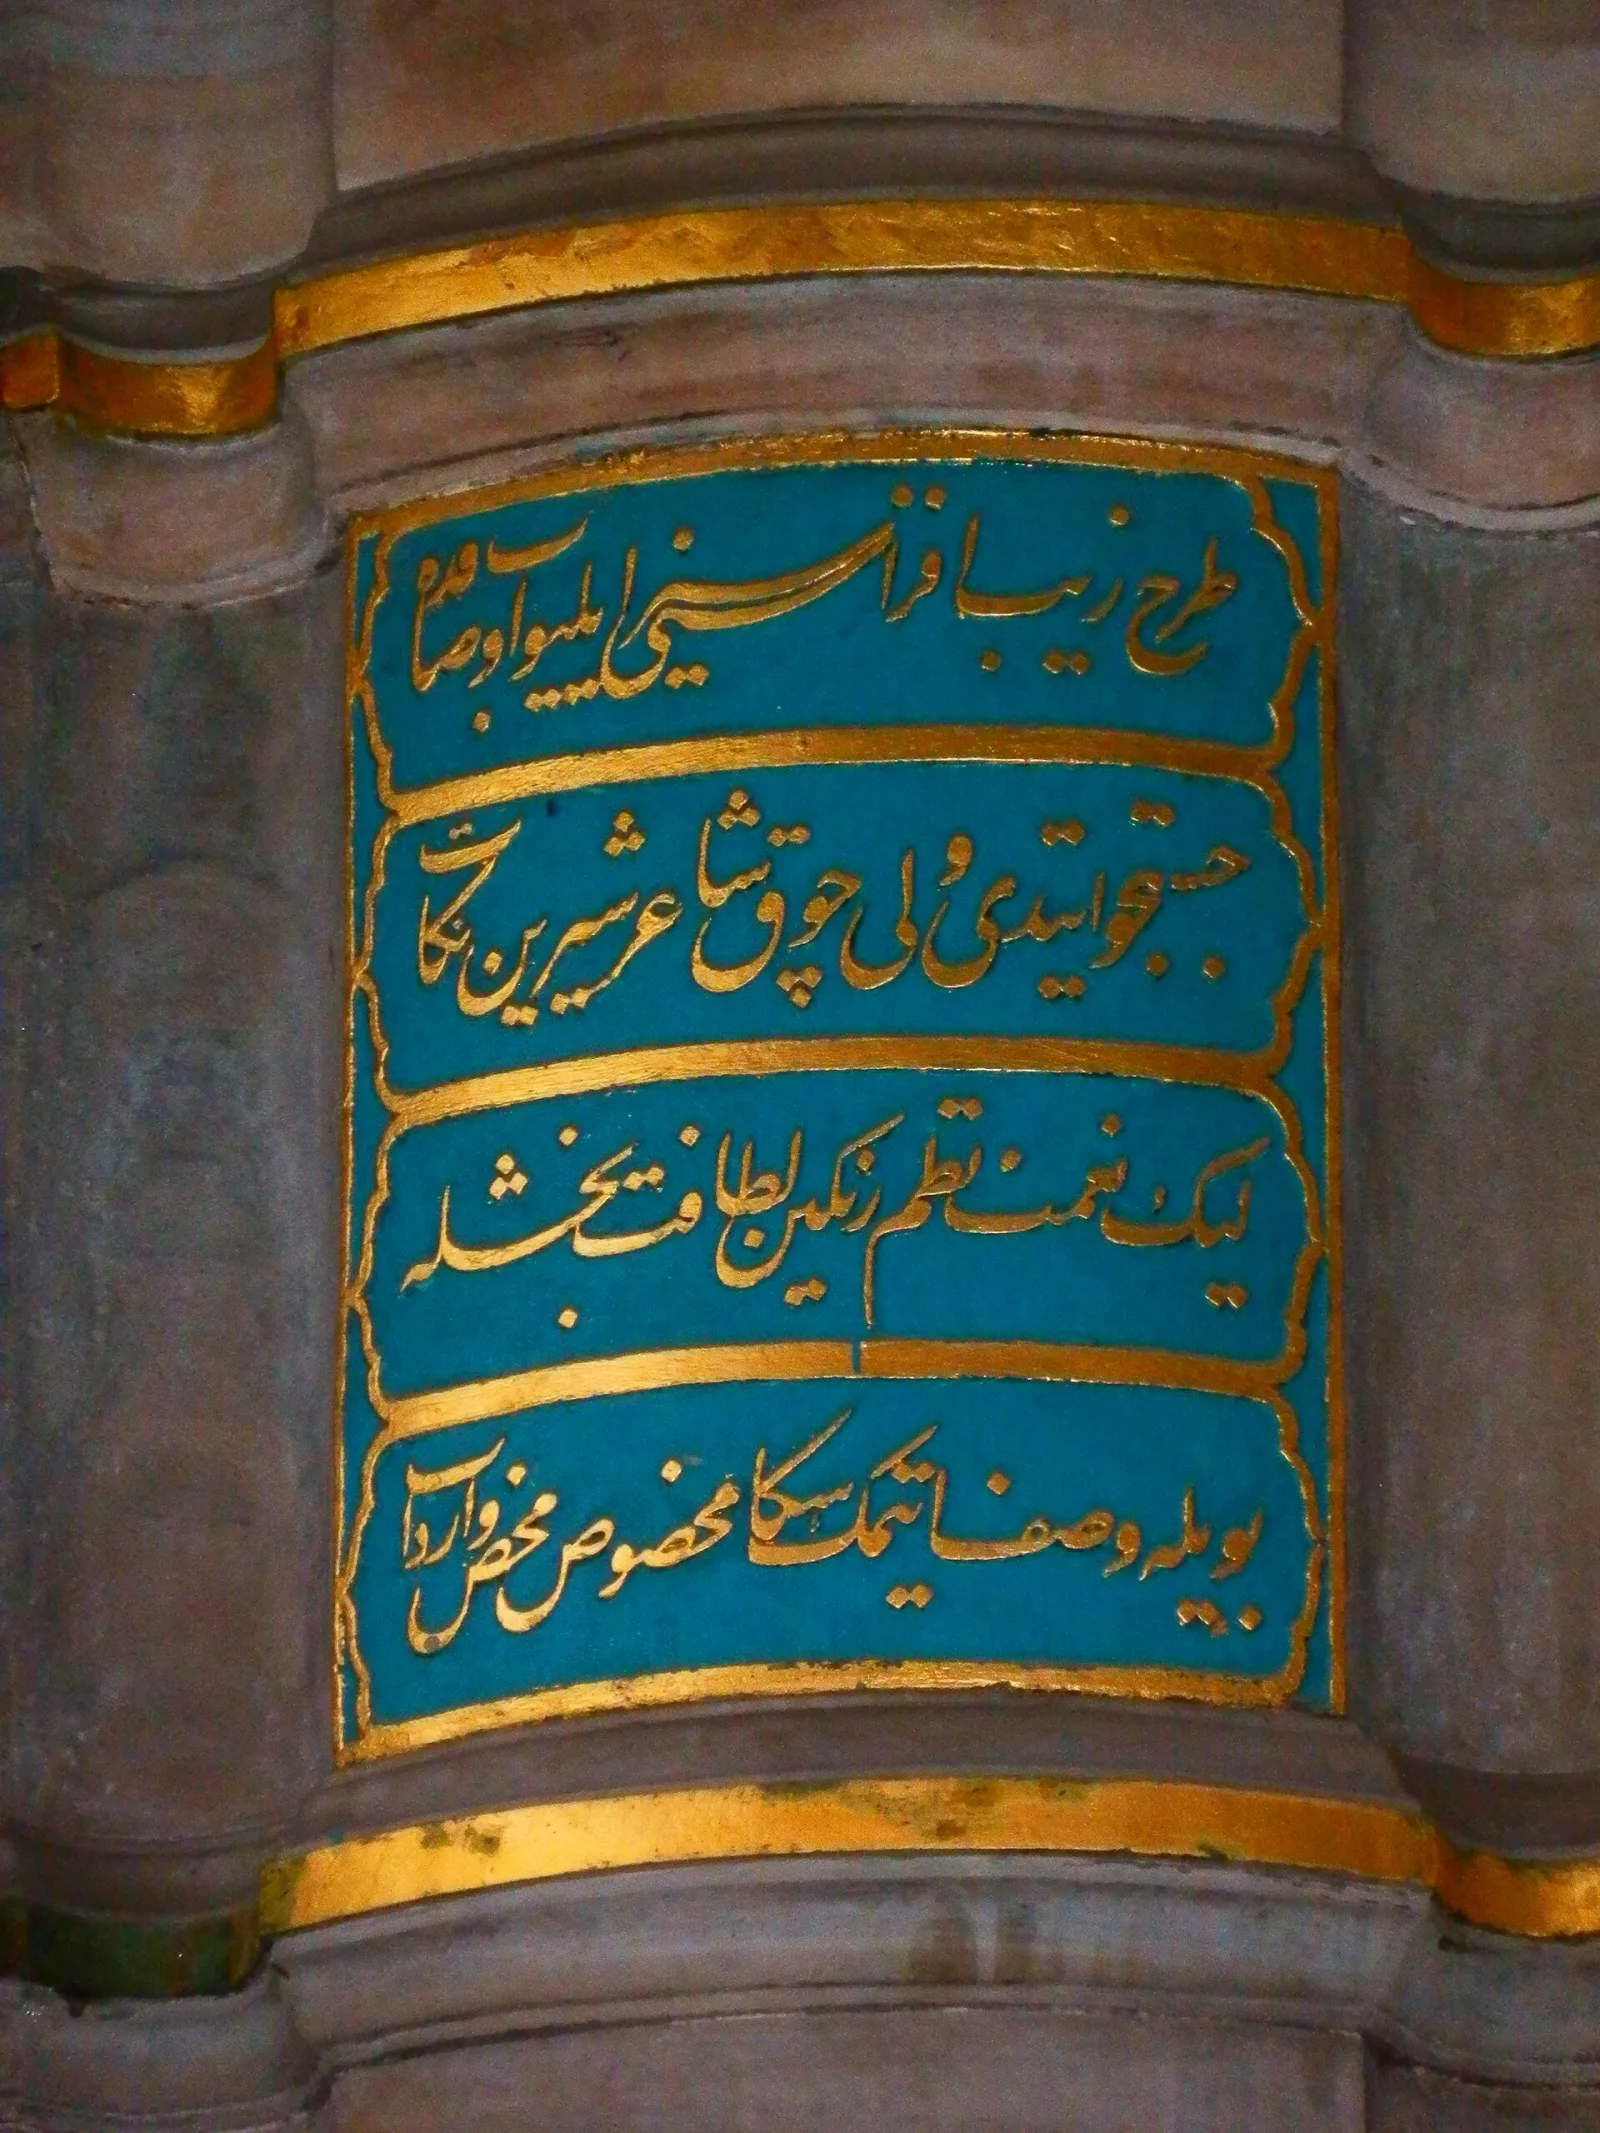 طرح زیبا فزاسنی رایلیوب اوصافده
جستجو ایتدی ولی چوق شاعر شیرین نکات
لیک نعمت نظم رنکین لطافت بخشله
بویله وصفات ایتمک سکا مخصوص محض واردات